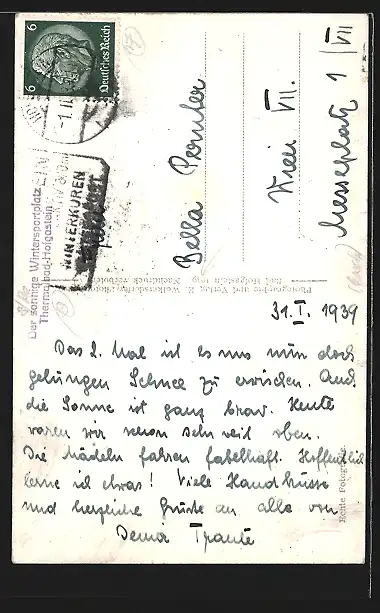 31. I. 1939
Das 2. Mal ist es uns nun doch
gelungen Schnee zu erwischen. Auch
die Sonne ist ganz brav. Heute
waren wir schon sehr weit oben.
Die Mädeln fahren fabelhaft. Hoffentlich
lerne ich etwas! Viele Handküsse
und herzliche Grüße an alle von
Deiner Traute
Bella
Wien VII.
Messeplatz 1 / VII
6 Deutsches Reich 6
WINTERKUREN
Der sonnige Wintersportplatz
Thermalbad-Hofgastein
Photographie und Verlag
Bad Hofgastein
Nachdruck verboten
Echte Fotografie